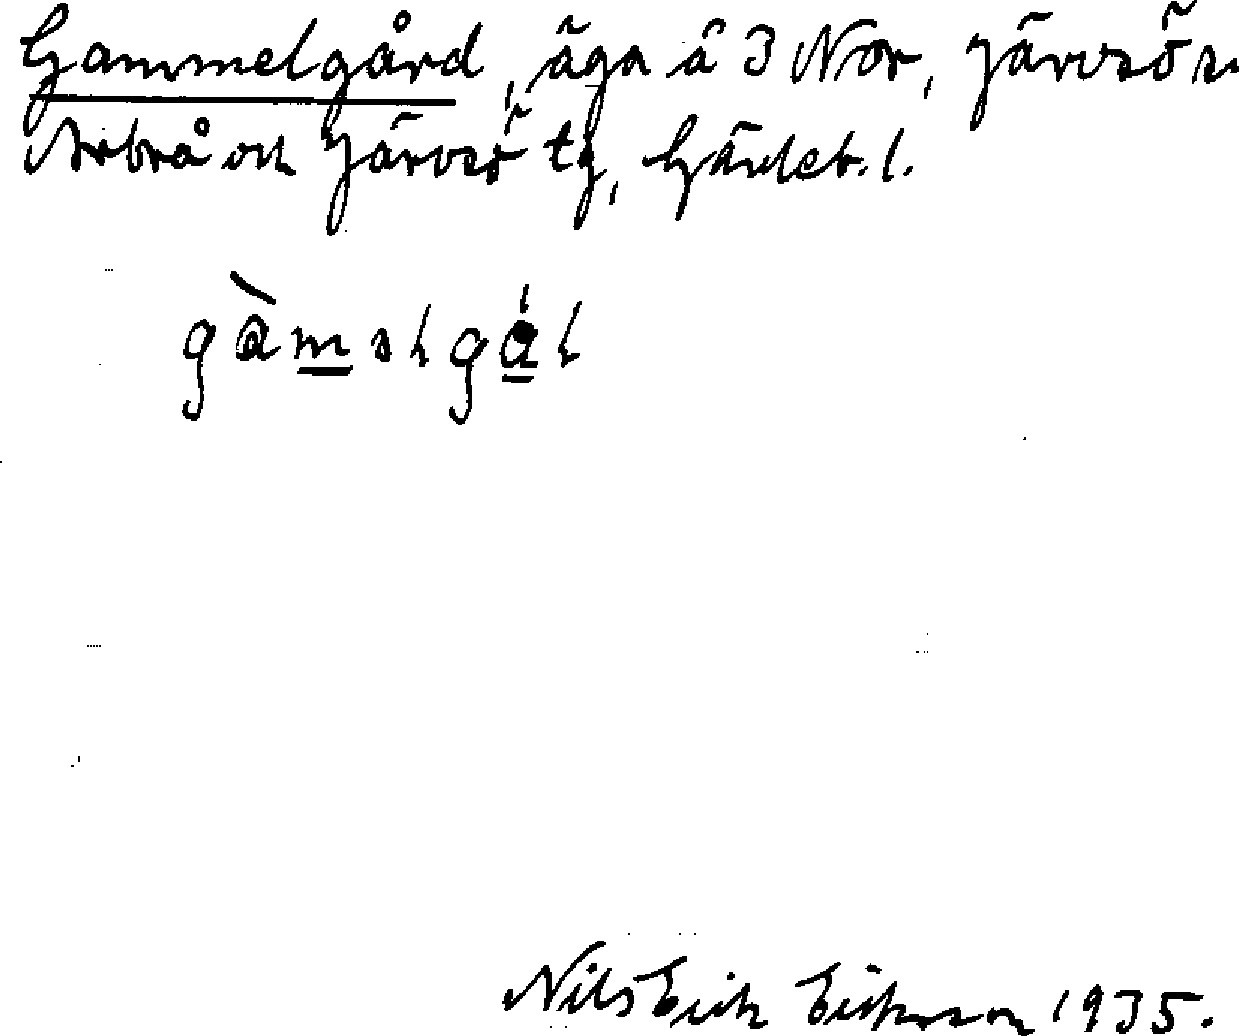 Gammelgård, äga å 3 Nor, Järvsö sn
Arbrå och Järvsö tg, Gävleb. l.
gàmalgál
Nils Erik Eriksson 1935.